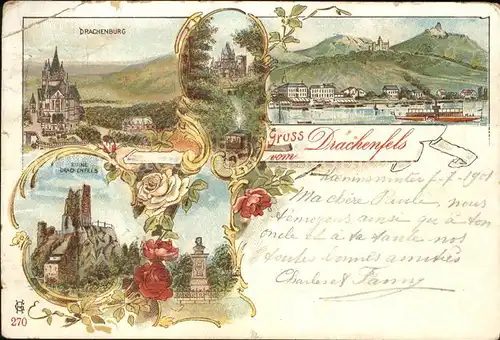 DRACHENBURG
Gruss
vom Drachenfels
RUINE
DRACHENFELS
7 1901
Ma chère Paule, nous
t'envoyons ainsi qu'à ton
oncle et à ta tante nos
toutes bonnes amitiés
Charles et Fanny
270